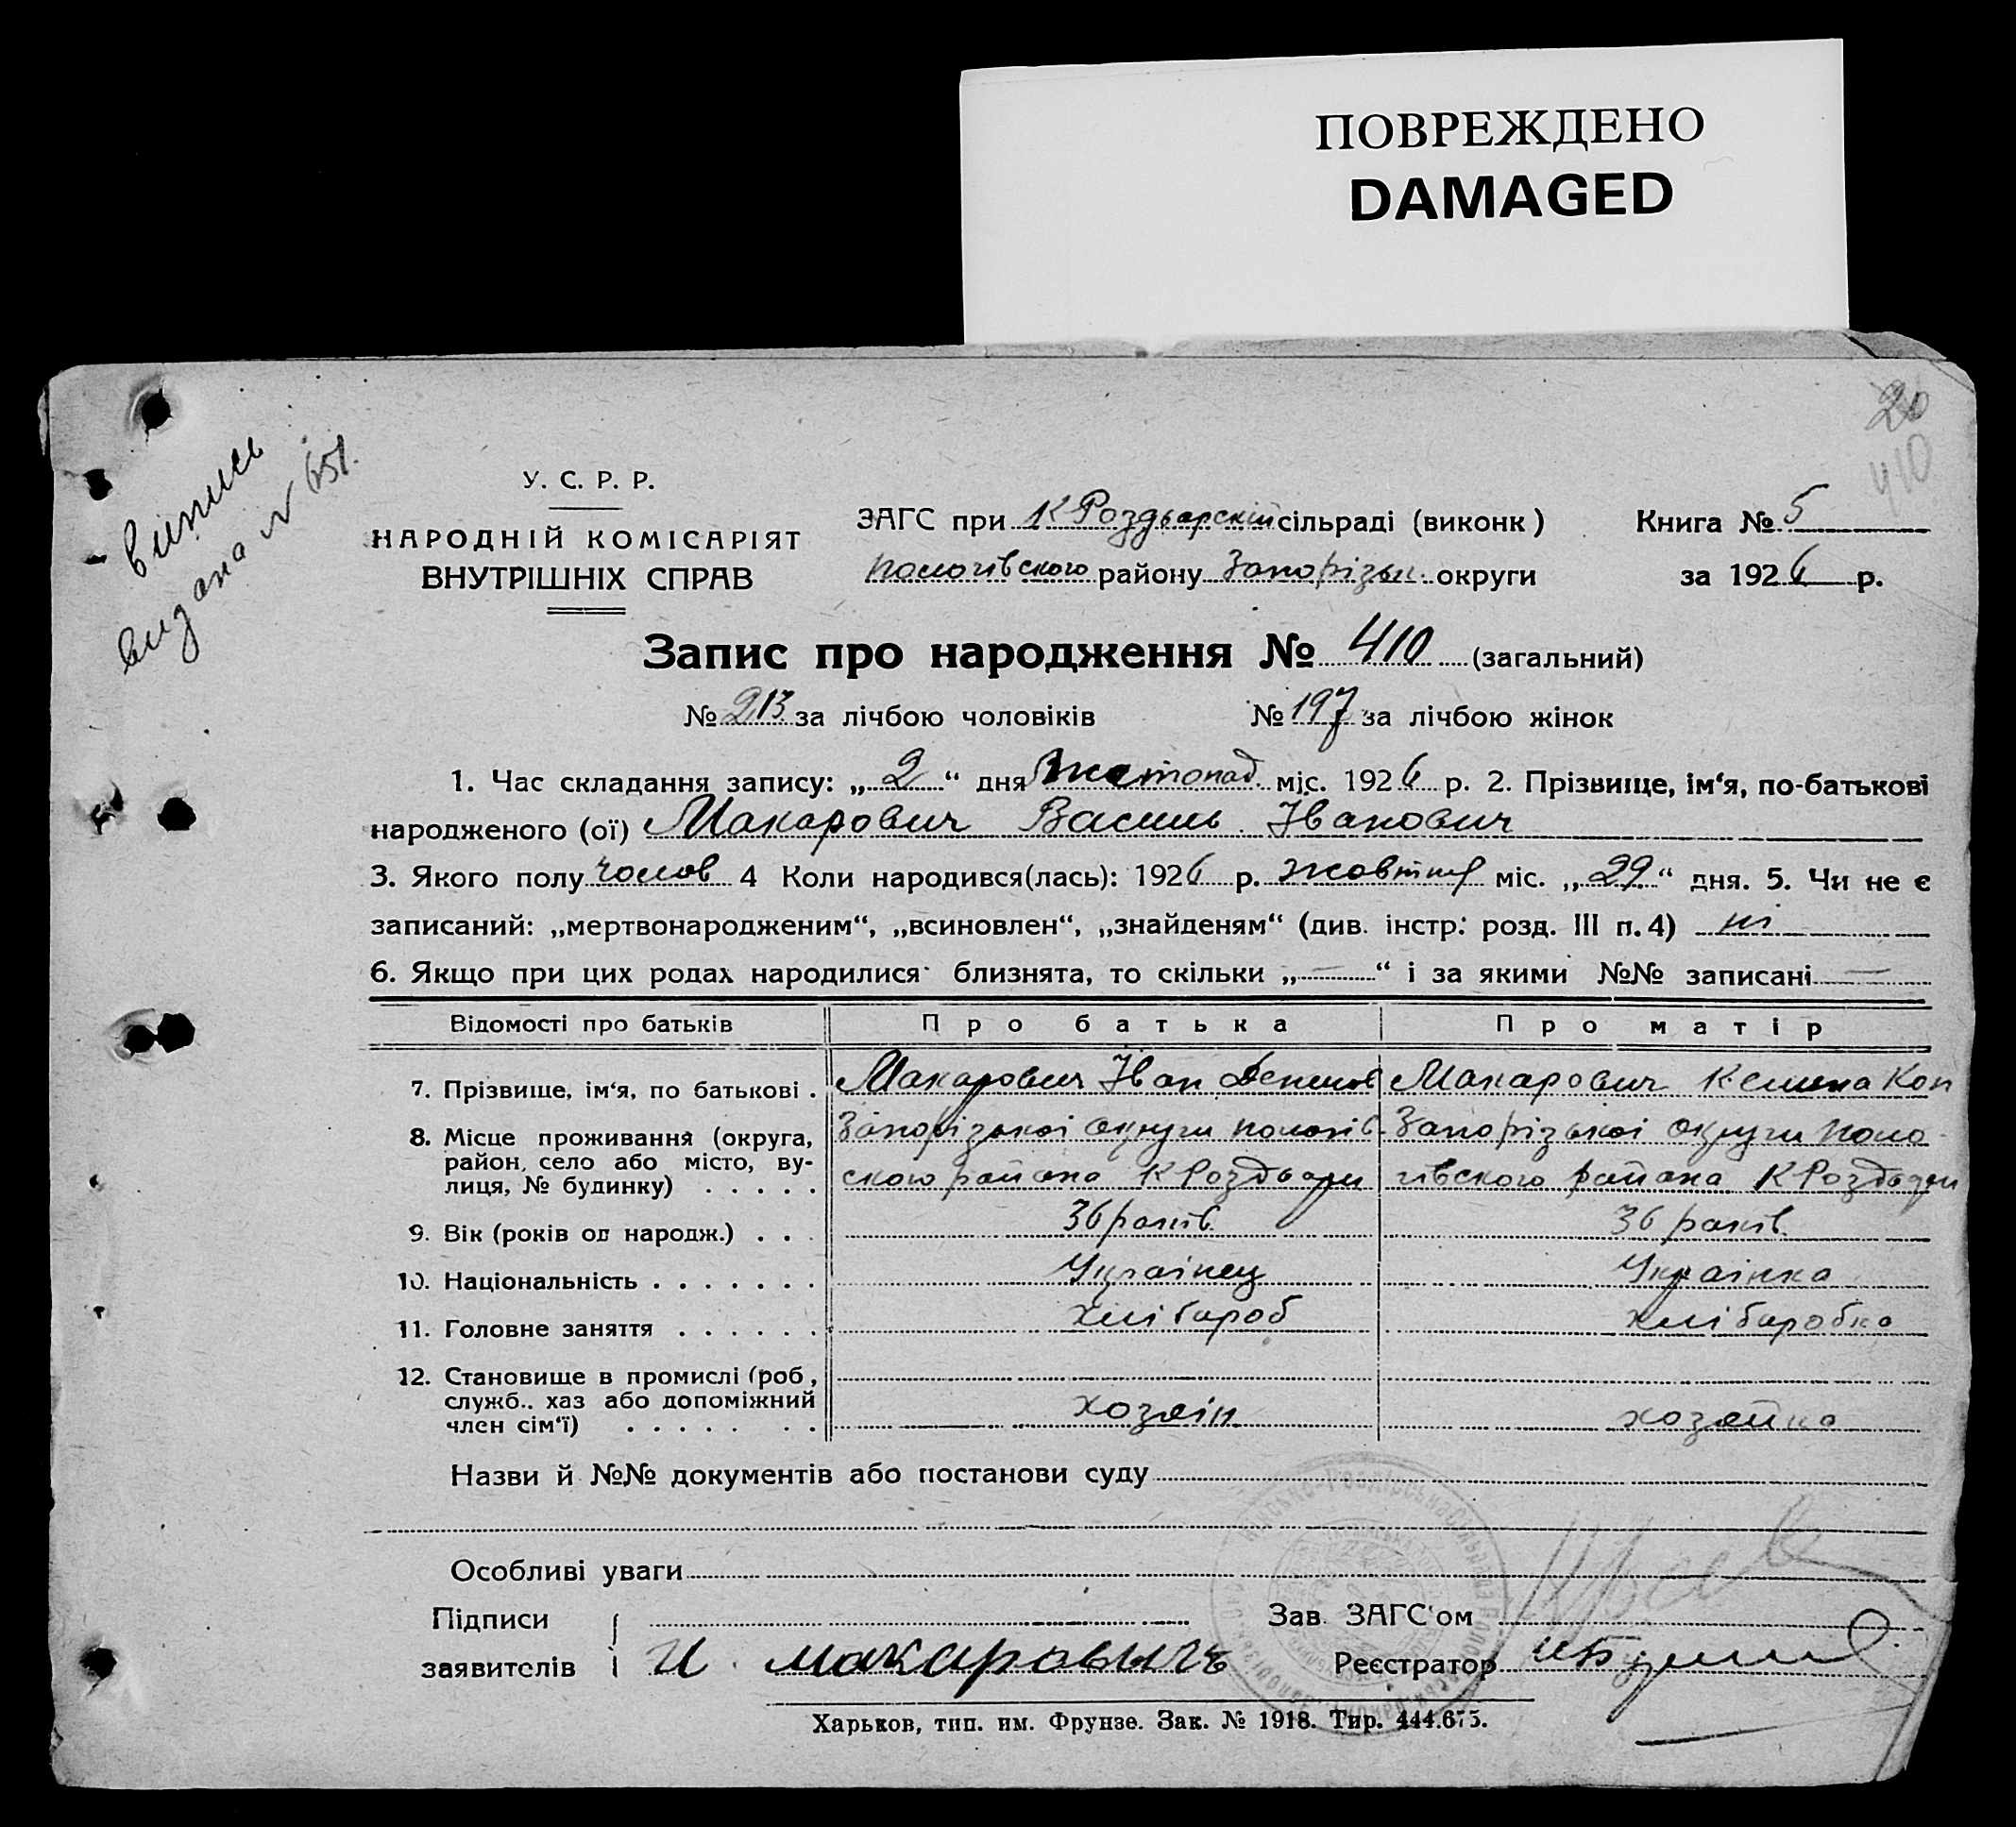 ПОВРЕЖДЕНО
DAMAGED
20
410
випись
видана № 651.
У. С. Р. Р.
НАРОДНІЙ КОМІСАРІЯТ
ВНУТРІШНІХ СПРАВ
ЗАГС при К Роздорскій сільраді (виконк)
Пологівского району Запорізьк. округи
Книга № 5
за 1926 р.
Запис про народження № 410 (загальний)
№ 213 за лічбою чоловіків № 197 за лічбою жінок
1. Час складання запису: „2“ дня листопад міс. 1926 р. 2. Прізвище, ім‘я, по-батькові
народженого (ої) Макарович Василь Іванович
3. Якого полу чолов 4 Коли народився(лась): 1926 р. жовтня міс. „29“ дня. 5. Чи не є
записаний: „мертвонародженим“, „всиновлен“, „знайденям“ (див. інстр. розд. III п. 4) ні
6. Якщо при цих родах народилися близнята, то скільки „—“ і за якими №№ записані —
Відомості про батьків Про батька Про матір
7. Прізвище, ім‘я, по батькові . Макарович Іван Макарович
8. Місце проживання (округа, Запорізької округи пологів- Запорізької округи Поло-
район, село або місто, ву- ского района К Роздори гівского района К Роздори
лиця, № будинку) . . . . .
9. Вік (років од народж.) . . . 36 років. 36 років.
10. Національність . . . . . . . Українец Українка
11. Головне заняття . . . . . . хлібароб хлібаробка
12. Становище в промислі (роб.,
служб., хаз або допоміжний хозяін хозяйка
член сім‘ї) . . . . . . .
Назви й №№ документів або постанови суду
Особливі уваги
Підписи Зав. ЗАГС‘ом
заявителів И. Макаровичъ Реєстратор
Харьков, тип. им. Фрунзе. Зак. № 1918. Тир. 444.675.